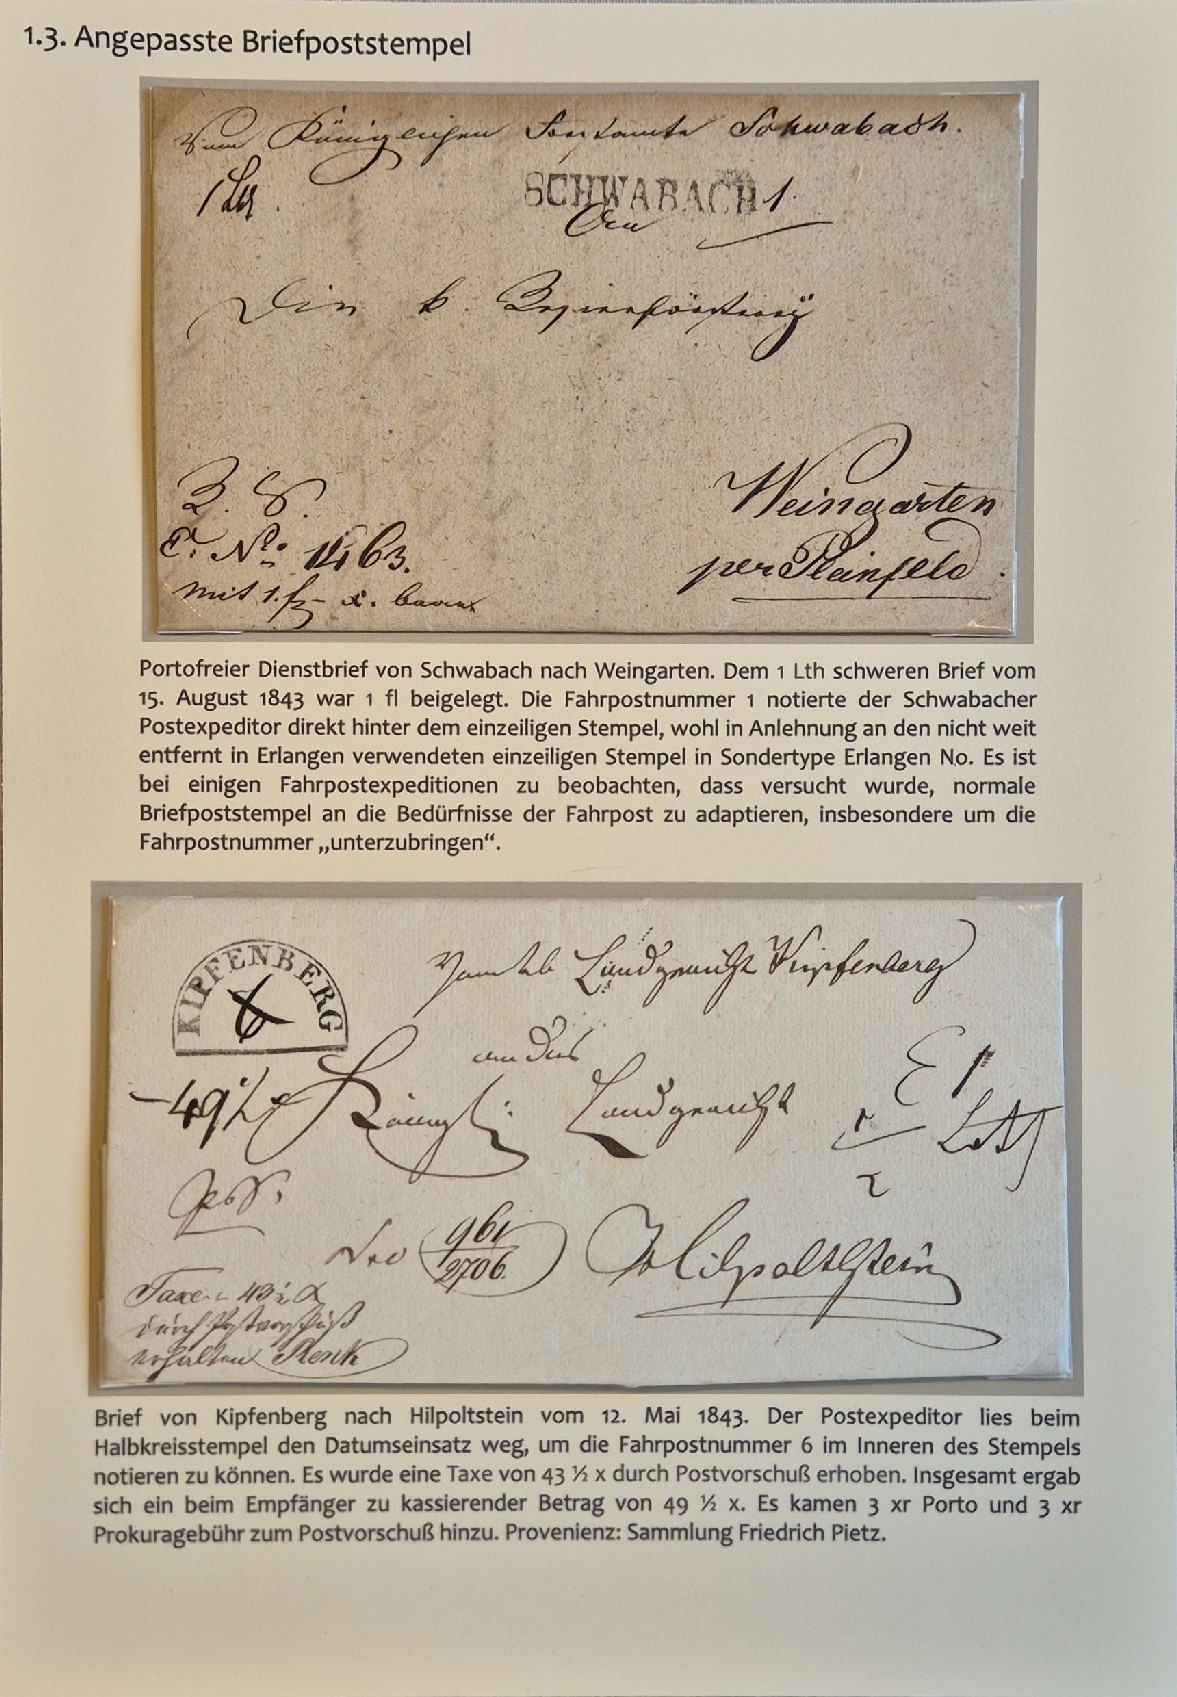 1.3. Angepasste Briefpoststempel
Vom Königlichen Forstamte Schwabach.
1 Lth.
SCHWABACH 1.
An
Die k. Revierförsterey
R. S.
E. No. 1463.
mit 1 f
Weingarten
per Pleinfeld.
Portofreier Dienstbrief von Schwabach nach Weingarten. Dem 1 Lth schweren Brief vom
15. August 1843 war 1 fl beigelegt. Die Fahrpostnummer 1 notierte der Schwabacher
Postexpeditor direkt hinter dem einzeiligen Stempel, wohl in Anlehnung an den nicht weit
entfernt in Erlangen verwendeten einzeiligen Stempel in Sondertype Erlangen No. Es ist
bei einigen Fahrpostexpeditionen zu beobachten, dass versucht wurde, normale
Briefpoststempel an die Bedürfnisse der Fahrpost zu adaptieren, insbesondere um die
Fahrpostnummer „unterzubringen“.
KIPFENBERG
6
Landgericht Kipfenberg
an das
49½ x
Königl: Landgericht
1 Lth
Hilpoltstein
2706.
Taxe 43½ x
durch Postvorschuß
erhalten Renk
Brief von Kipfenberg nach Hilpoltstein vom 12. Mai 1843. Der Postexpeditor lies beim
Halbkreisstempel den Datumseinsatz weg, um die Fahrpostnummer 6 im Inneren des Stempels
notieren zu können. Es wurde eine Taxe von 43 ½ x durch Postvorschuß erhoben. Insgesamt ergab
sich ein beim Empfänger zu kassierender Betrag von 49 ½ x. Es kamen 3 xr Porto und 3 xr
Prokuragebühr zum Postvorschuß hinzu. Provenienz: Sammlung Friedrich Pietz.